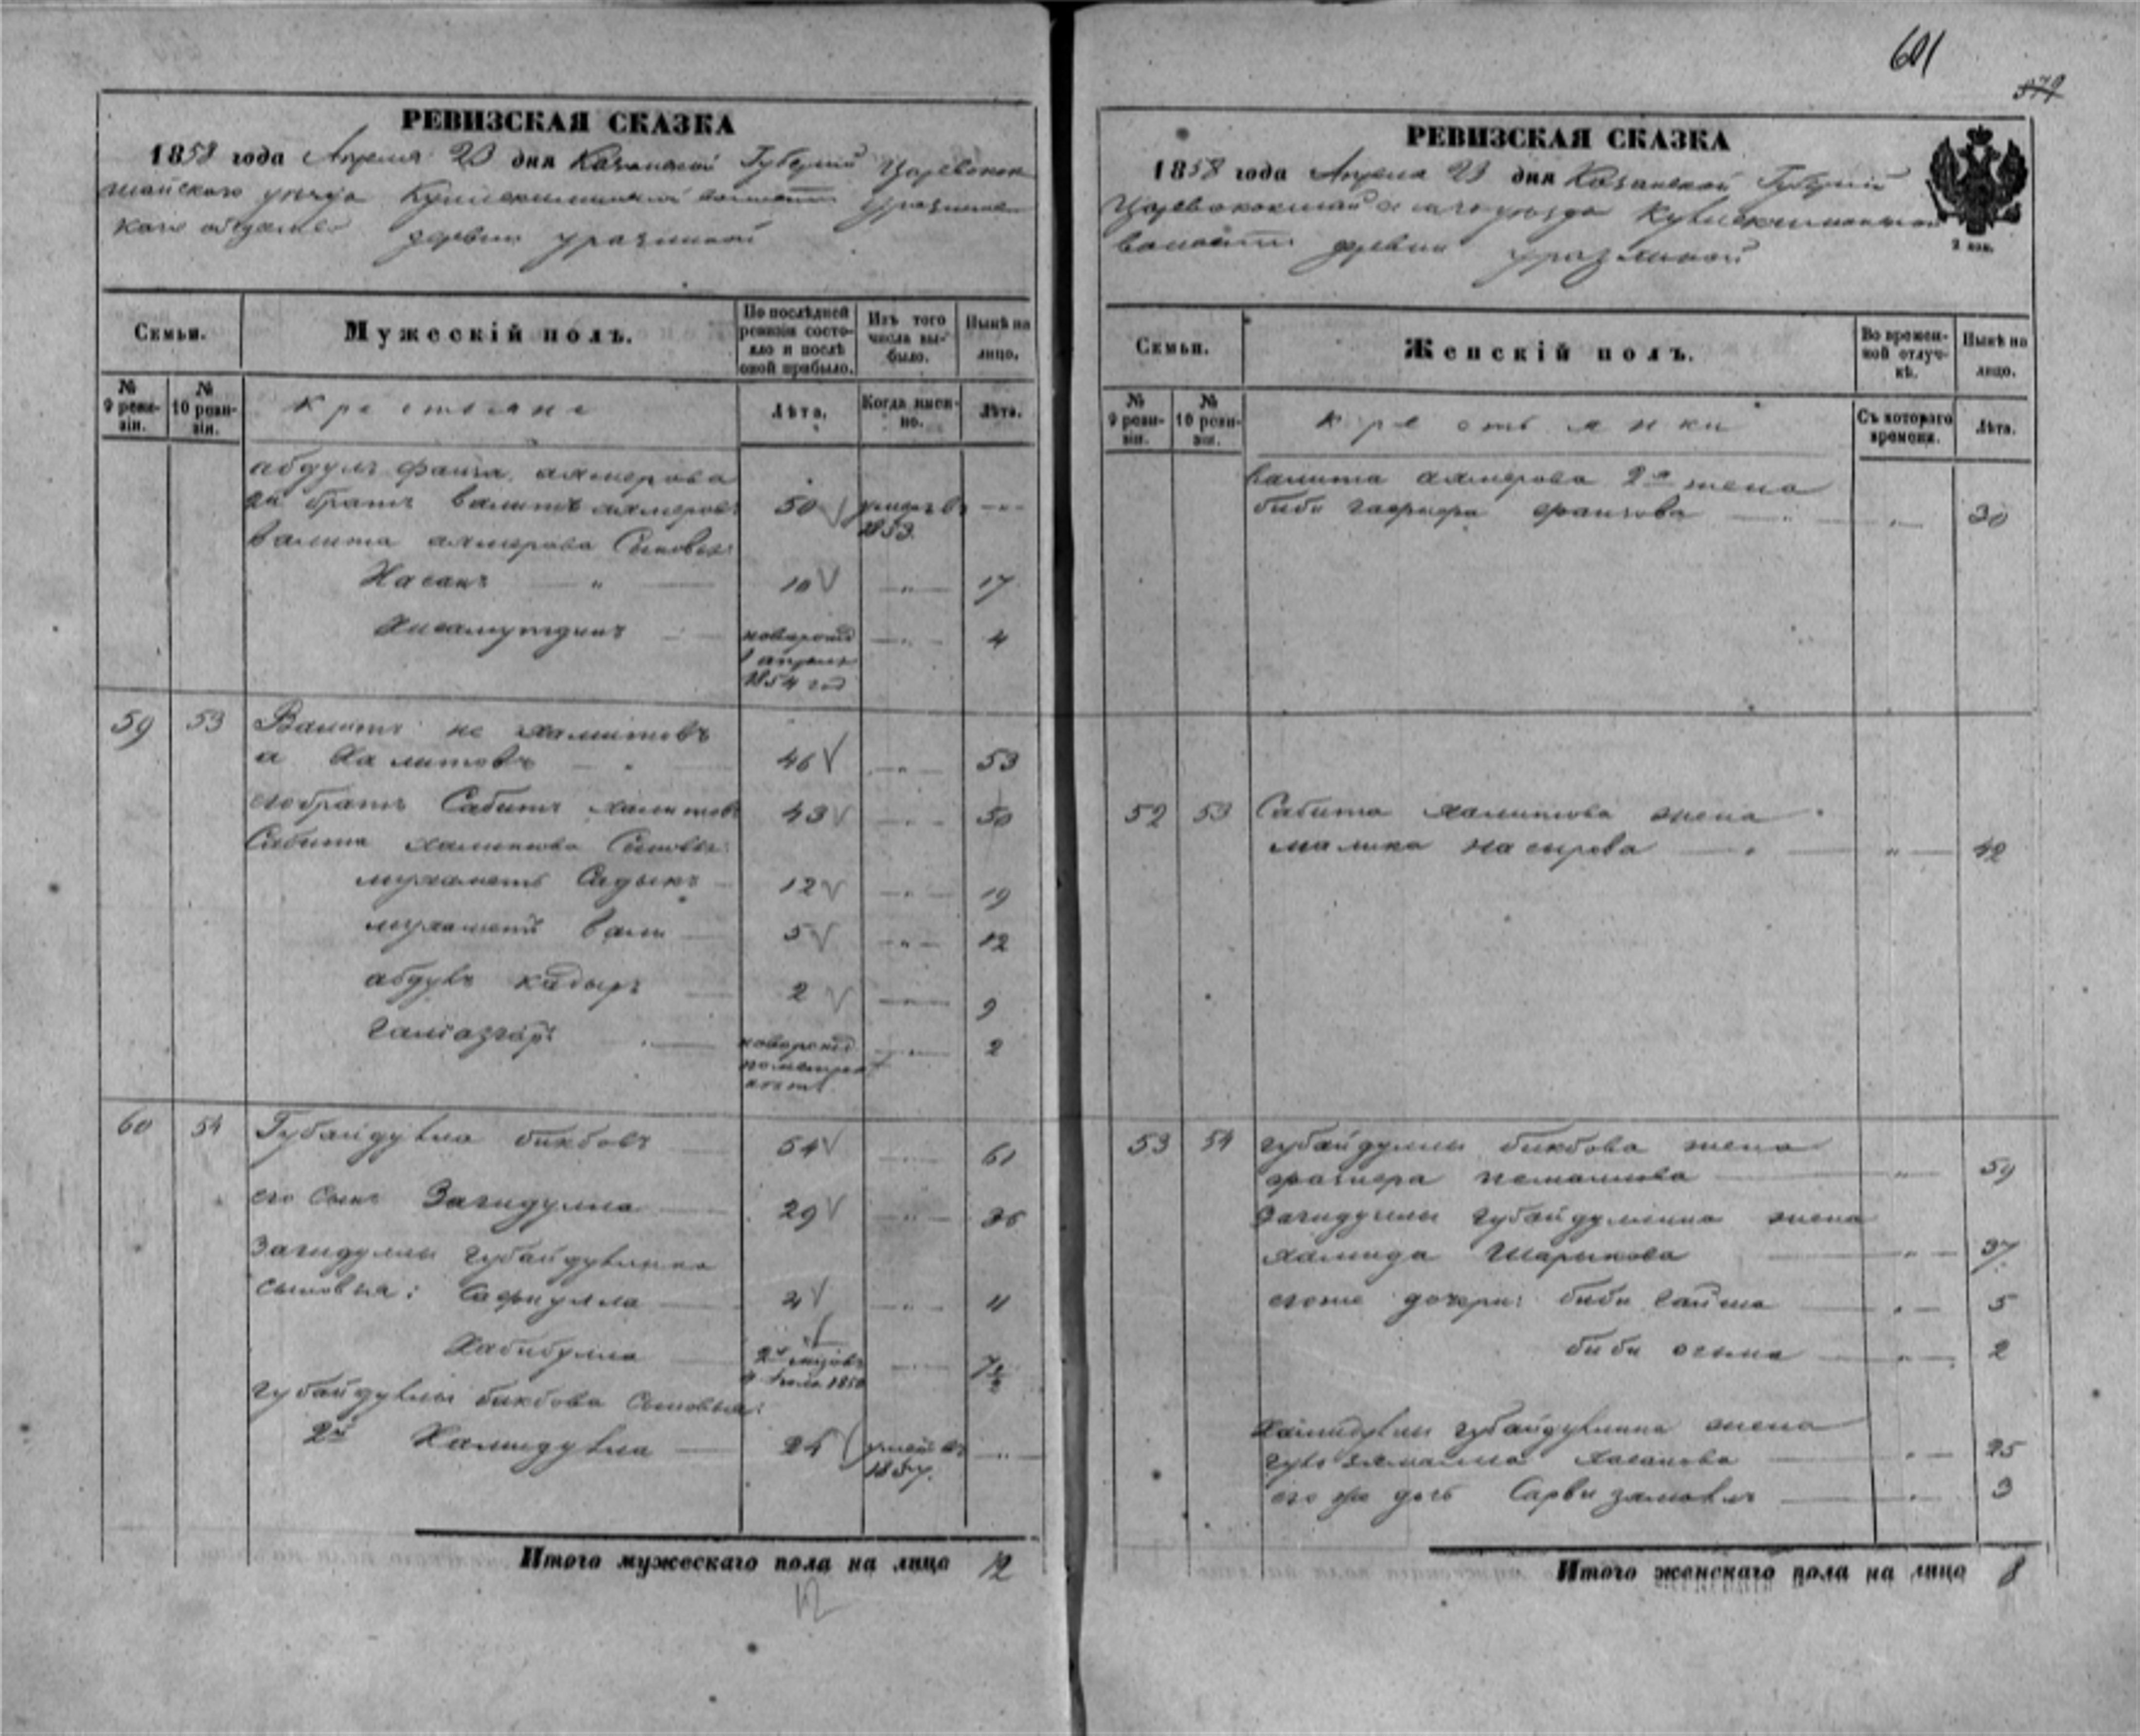 601
379
РЕВИЗСКАЯ СКАЗКА
1858 года Апреля 23 дня Казанской Губернии Царевокок
шайского уезда волости
деревни
Семьи.
Мужескій полъ.
По послѣдней ревизіи состояло и послѣ оной прибыло.
Изъ того числа выбыло.
Нынѣ на лицо.
№ 9 ревизіи.
№ 10 ревизіи.
Крестьяне
Лѣта.
Когда именно.
Лѣта.
абдулъ фаиза аямерова
2й братъ Валитъ аямеровъ 50 умеръ въ 1853
Валита аямерова Сыновья:
Хасанъ 10 17
Хисамутдинъ новорожд 4
апреля
1854 год
59 53 Валитъ не Хамитовъ
а Халитовъ 46 53
его братъ Сабитъ Халитовъ 43 50
Сабита Халитова Сыновья:
мухаметъ Садыкъ 12 19
мухаметъ Вали 5 12
абдулъ кадыръ 2 9
новорожд 2
60 54 Губайдулла бикбовъ 54 61
его Сынъ Загидулла 29 36
Загидуллы Губайдуллина
сыновья: Сафиулла 4 11
Хабибулла 7½
1850
Губайдуллы бикбова Сыновья:
2й Хамидулла 25 умеръ въ 1857.
Итого мужескаго пола на лицо 12
12
РЕВИЗСКАЯ СКАЗКА
1858 года Апреля 23 дня Казанской Губернии
Царевококшайскаго уезда
волости деревни
2 коп.
Семьи.
Женскій полъ.
Во временной отлучкѣ.
Нынѣ на лицо.
№ 9 ревизіи.
№ 10 ревизіи.
Крестьянки
Съ котораго времени.
Лѣта.
Валита аямерова 2я жена
биби фаизова 30
52 53 Сабита Халитова жена
малика насырова 42
53 54 Губайдуллы бикбова жена
59
Загидуллы Губайдуллина жена
Хамида Шарыпова 37
его же дочери: биби Гайша 5
биби 2
Хамидуллы Губайдуллина жена
Хасанова 25
его же дочь Сарви 3
Итого женскаго пола на лицо 8